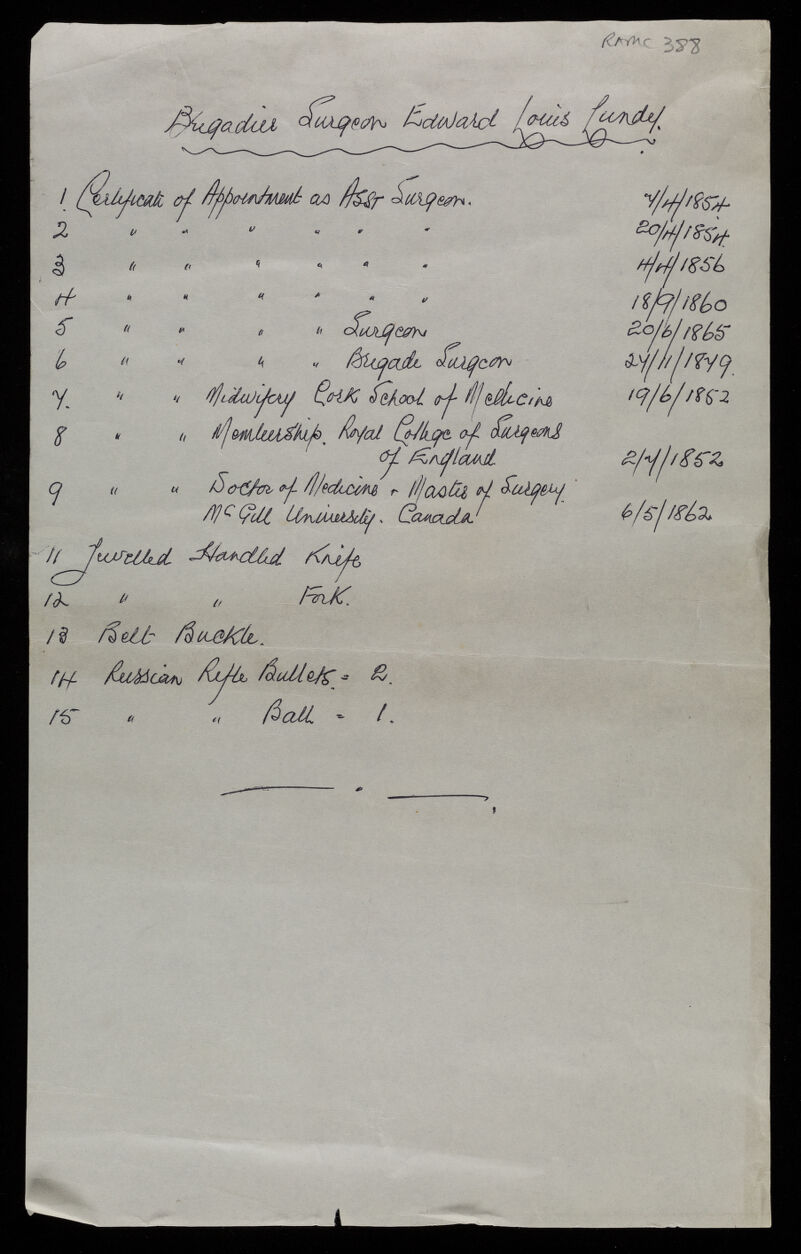 RAMC 388
Brigadier Surgeon Edward Louis Lundy.
1 Certificate of Appointment as Asst Surgeon. 7/4/1854
2 " " " " " " 20/4/1854
3 " " " " " " 4/4/1856
4 " " " " " " 18/9/1860
5 " " " " Surgeon 20/6/1865
6 " " " " Brigade Surgeon 27/11/1879.
7. " " Midwifery Cork School of Medicine 19/6/1852
8 " " Membership. Royal College of Surgeons
of England 2/7/1852
9 " " Doctor of Medicine + Master of Surgery.
McGill University. Canada 6/5/1862
11 Jewelled Handled Knife
12 " " Fork.
13 Belt Buckle.
14 Russian Rifle Bullets = 2.
15 " " Ball = 1.